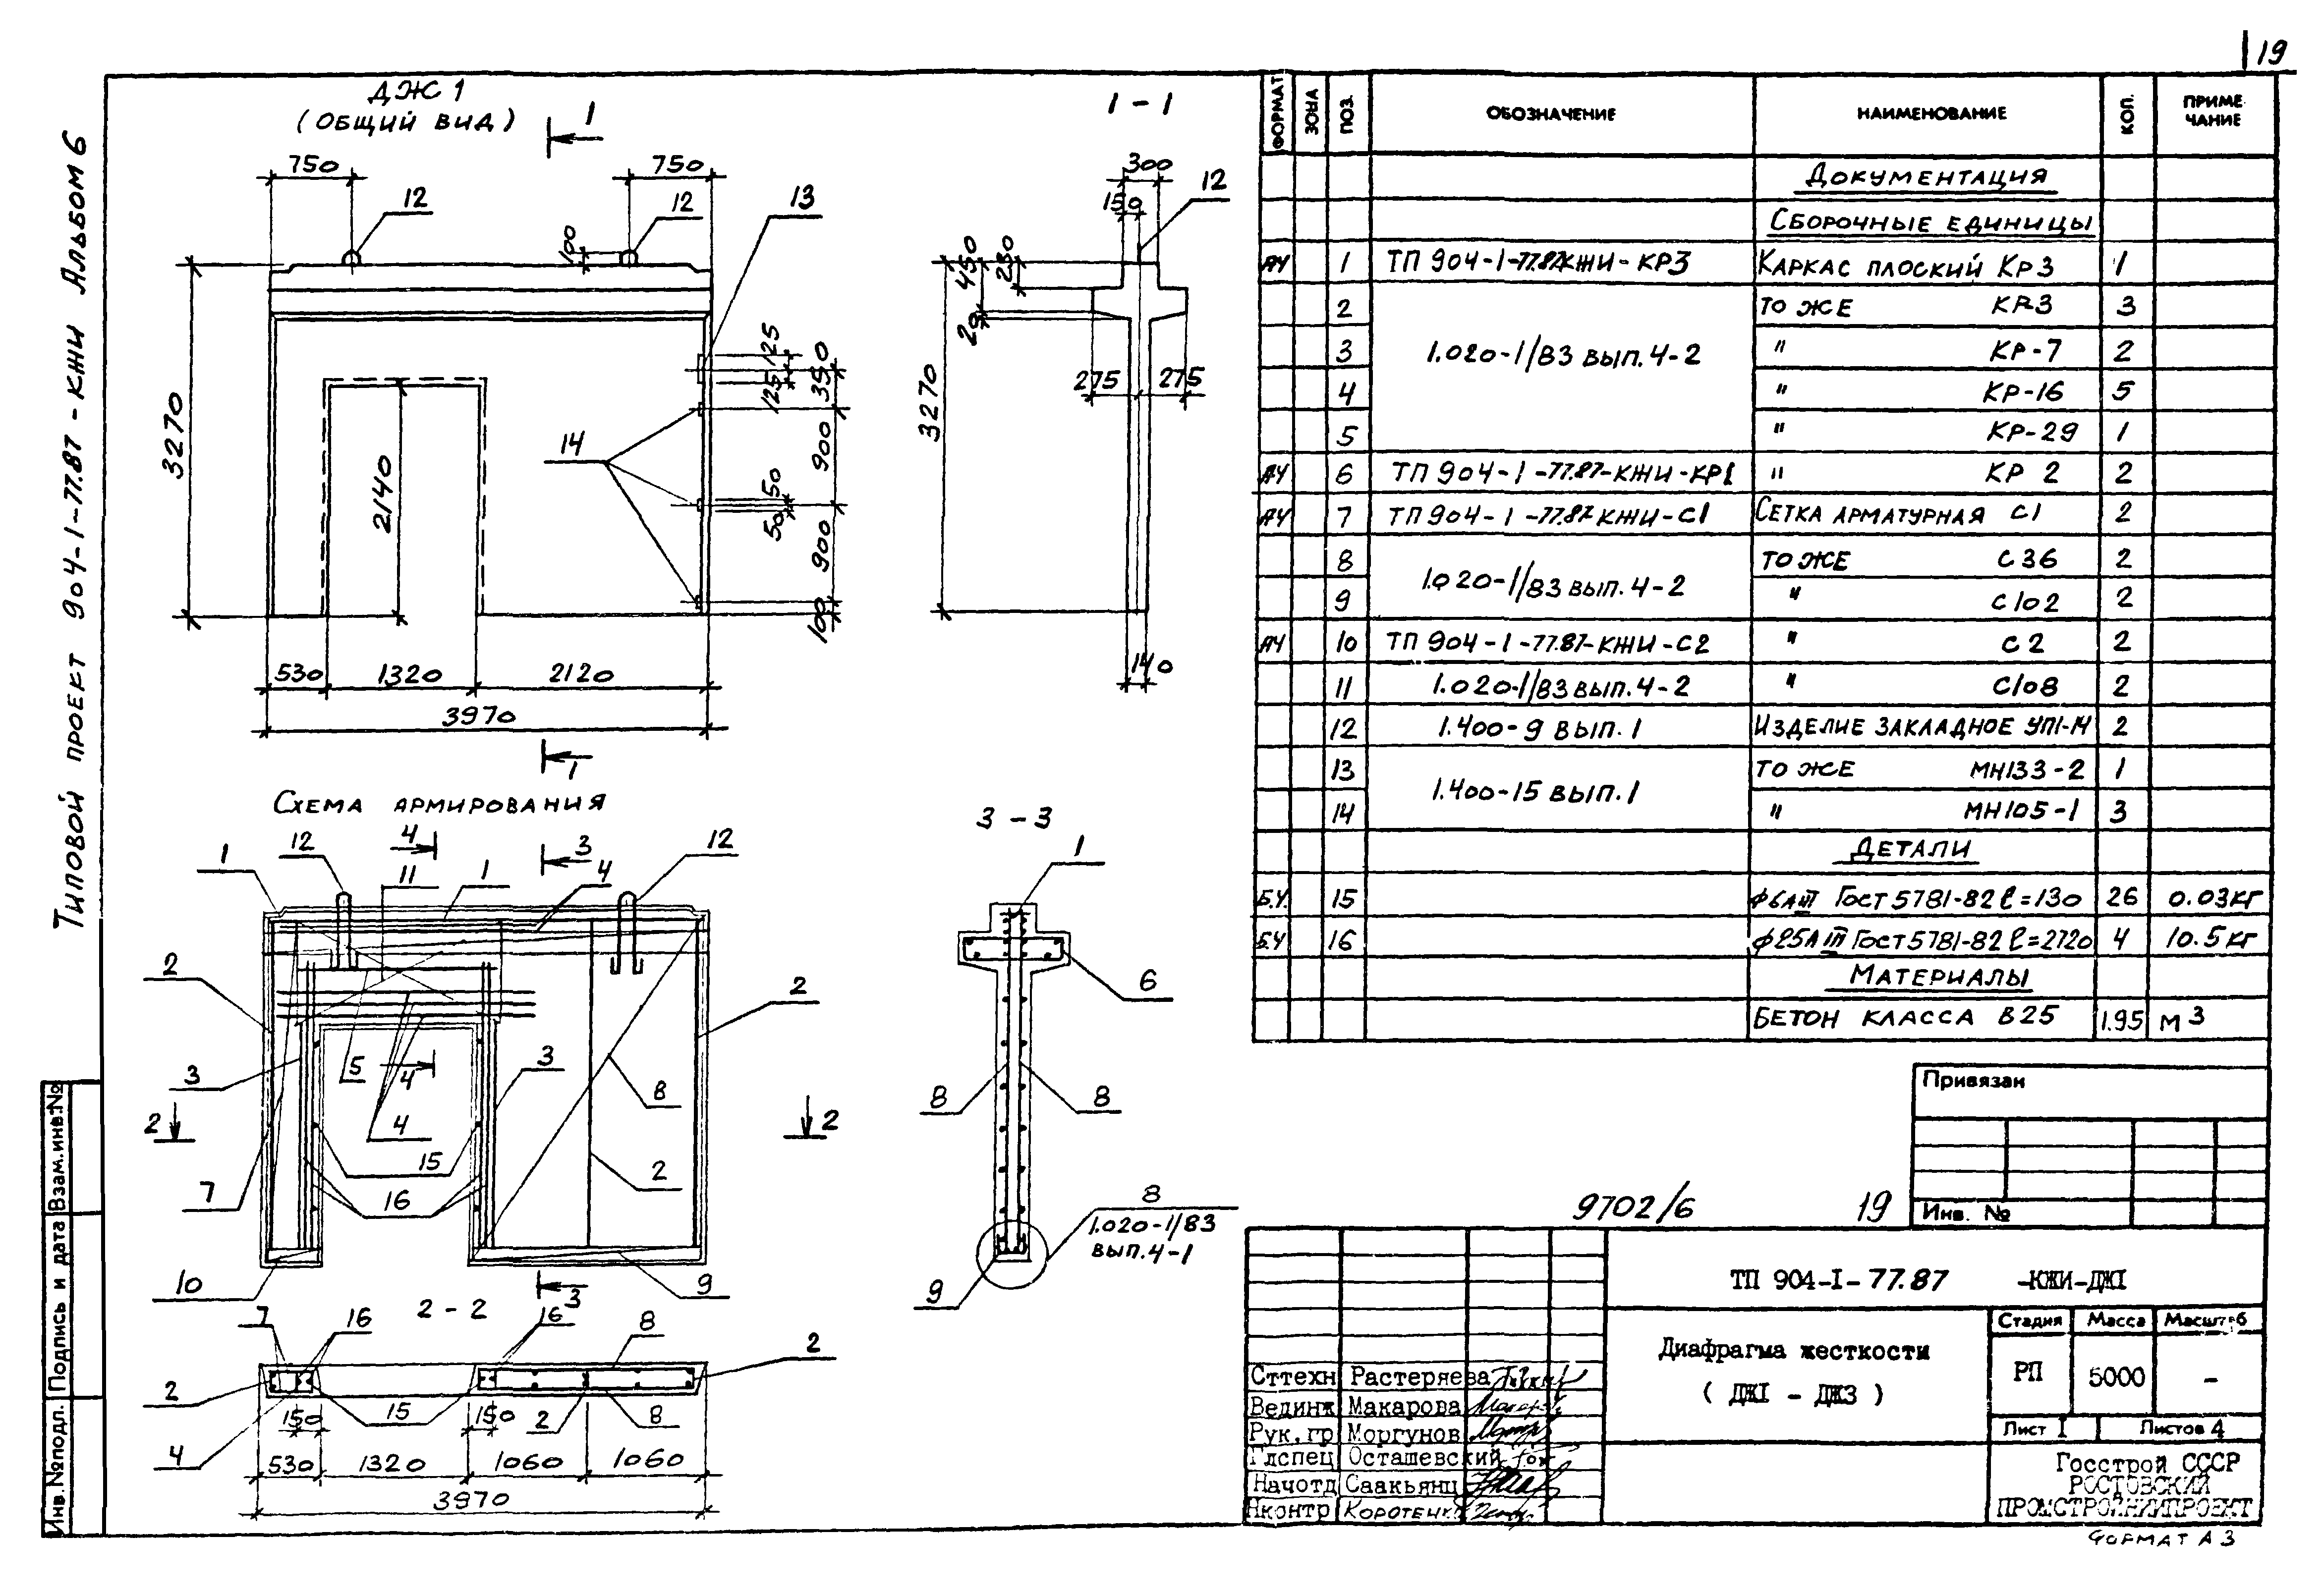 19
Типовой проект 904-1-77.87-КЖИ Альбом 6
ДЖ 1
(ОБЩИЙ ВИД)
1
750
750
12
12
13
100
3270
2140
14
125
125
350
900
50
50
900
100
530
1320
2120
3970
1
1-1
300
150
12
450
230
20
275
275
3270
140
СХЕМА АРМИРОВАНИЯ
4
3
1
12
11
1
4
12
2
2
3
5
4
3
8
2
2
4
7
15
16
2
10
9
3
3-3
1
6
8
8
9
8
1.020-1/83
ВЫП.4-1
2-2
7
16
16
8
2
2
150
15
150
2
8
4
530
1320
1060
1060
3970
ФОРМАТ
ЗОНА
ПОЗ.
ОБОЗНАЧЕНИЕ
НАИМЕНОВАНИЕ
КОЛ.
ПРИМЕ
ЧАНИЕ
ДОКУМЕНТАЦИЯ
СБОРОЧНЫЕ ЕДИНИЦЫ
А4 1 ТП 904-1-77.87КЖИ-КР3 КАРКАС ПЛОСКИЙ КР3 1
2 ТО ЖЕ КР-3 3
3 1.020-1/83 ВЫП.4-2 " КР-7 2
4 " КР-16 5
5 " КР-29 1
А4 6 ТП 904-1-77.87-КЖИ-КР1 " КР 2 2
А4 7 ТП 904-1-77.87 КЖИ-С1 СЕТКА АРМАТУРНАЯ С1 2
8 ТО ЖЕ С36 2
1.020-1/83 ВЫП.4-2
9 " С102 2
А4 10 ТП 904-1-77.87-КЖИ-С2 " С2 2
11 1.020-1/83 ВЫП.4-2 " С108 2
12 1.400-9 ВЫП.1 ИЗДЕЛИЕ ЗАКЛАДНОЕ УП1-14 2
13 ТО ЖЕ МН133-2 1
1.400-15 ВЫП.1
14 " МН105-1 3
ДЕТАЛИ
Б.Ч. 15 ф6АIII ГОСТ 5781-82 ℓ=130 26 0.03КГ
Б.Ч 16 ф25АIII ГОСТ 5781-82 ℓ=2720 4 10.5КГ
МАТЕРИАЛЫ
БЕТОН КЛАССА В25 1.95 М3
Привязан
Инв. №
9702/6
19
ТП 904-I-77.87 -КЖИ-ДЖI
Диафрагма жесткости
( ДЖI - ДЖ3 )
Стадия Масса Масштаб
РП 5000 -
Лист I Листов 4
Госстрой СССР
РОСТОВСКИЙ
ПРОМСТРОЙНИИПРОЕКТ
Сттехн Растеряева
Вединж Макарова
Рук.гр Моргунов
Глспец Осташевский
Начотд Саакьянц
Нконтр КОРОТЕНКО
ФОРМАТ А3
Инв.№подл. Подпись и дата Взам.инв.№